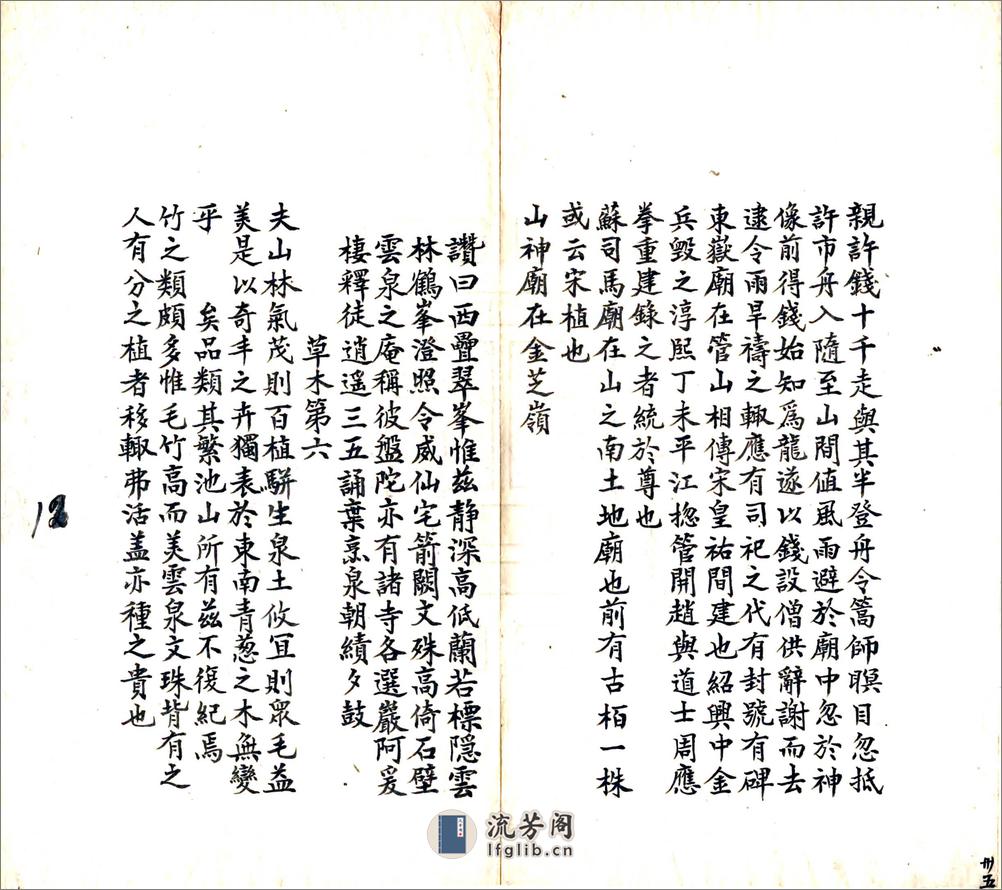 親許錢十千走與其半登舟令篙師瞑目忽抵
許市舟入隨至山間值風雨避於廟中忽於神
像前得錢始知爲龍遂以錢設僧供辭謝而去
逮令雨旱禱之輙應有司祀之代有封號有碑
東嶽廟在管山相傳宋皇祐間建也紹興中金
兵毀之淳熙丁未平江捴管開趙與道士周應
拳重建錄之者統於尊也
蘇司馬廟在山之南土地廟也前有古栢一株
或云宋植也
山神廟在金芝嶺
讚曰西疊翠峯惟茲静深高低蘭若標隱雲
林鶴峯澄照令威仙宅箭闕文殊高倚石壁
雲泉之庵稱彼盤陀亦有諸寺各選巖阿爰
棲釋徒逍遥三五誦葉烹泉朝績夕鼓
草木第六
夫山林氣茂則百植駢生泉土攸冝則眾毛益
羙是以奇丰之卉獨表於東南青葱之木無變
乎 矣品類其繁池山所有茲不復紀焉
竹之類頗多惟毛竹高而美雲泉文珠背有之
人有分之植者移輙弗活盖亦種之貴也
12
卅五
流芳阁
lfglib.cn